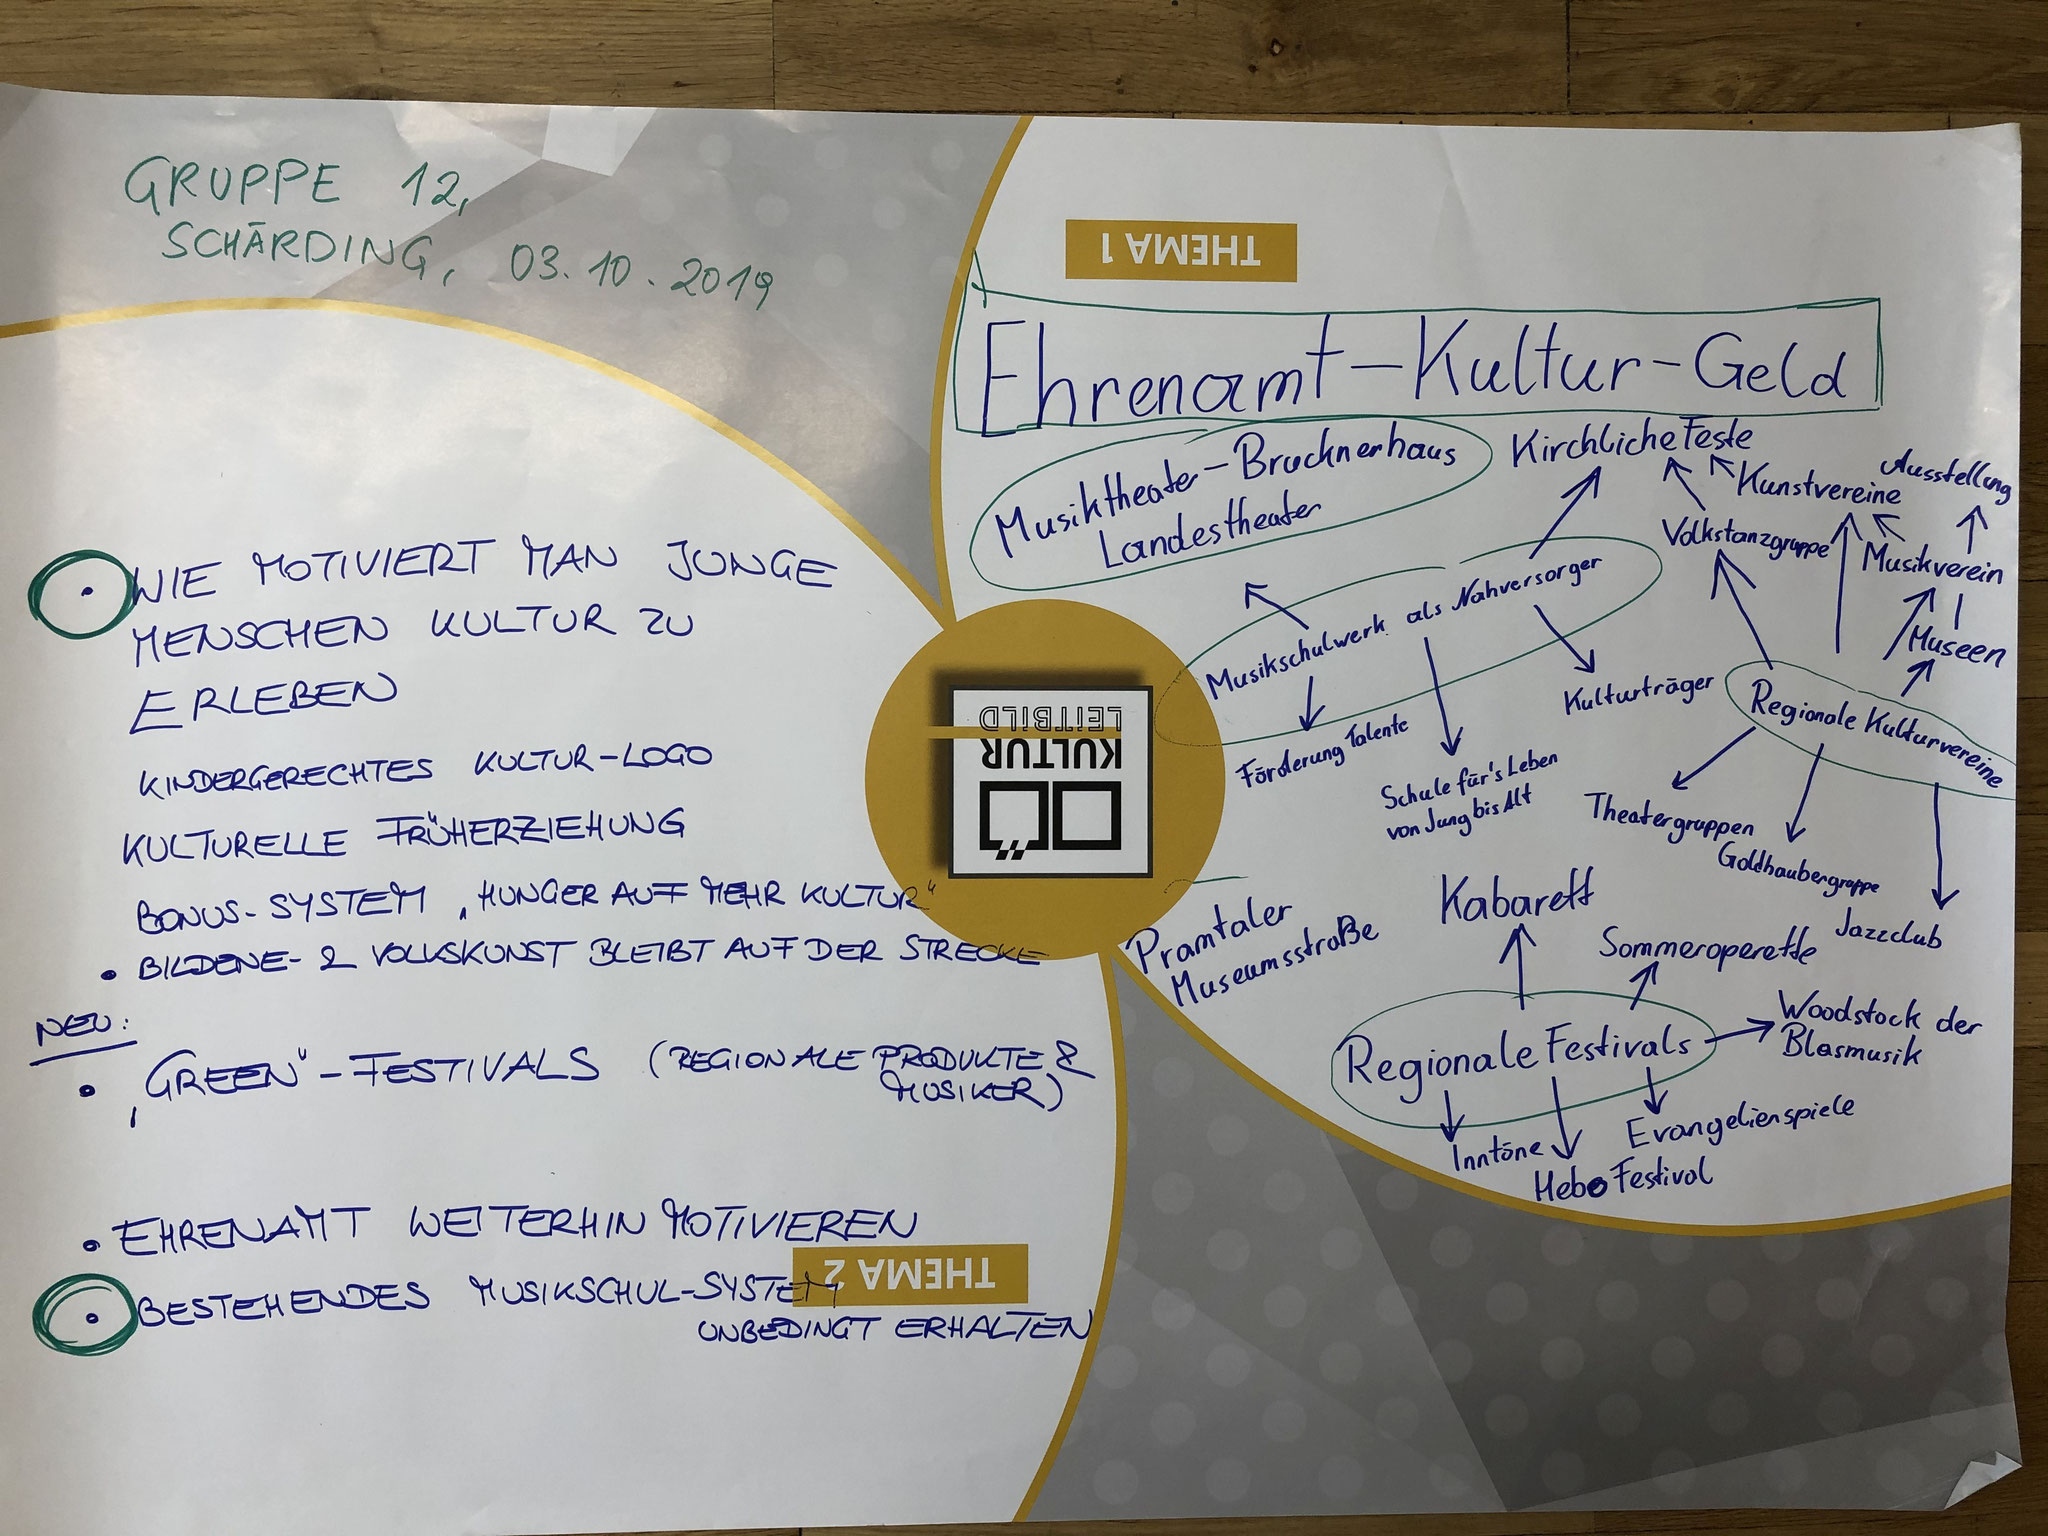 GRUPPE 12,
SCHÄRDING, 03.10.2019
WIE MOTIVIERT MAN JUNGE
MENSCHEN KULTUR ZU
ERLEBEN
KINDERGERECHTES KULTUR-LOGO
KULTURELLE FRÜHERZIEHUNG
BONUS-SYSTEM „HUNGER AUF MEHR KULTUR"
• BILDENE- & VOLKSKUNST BLEIBT AUF DER STRECKE
NEU:
• „GREEN"-FESTIVALS (REGIONALE PRODUKTE &
MUSIKER)
• EHRENAMT WEITERHIN MOTIVIEREN
• BESTEHENDES MUSIKSCHUL-SYSTEM
UNBEDINGT ERHALTEN
THEMA 2
KULTUR
LEITBILD
THEMA 1
Ehrenamt-Kultur-Geld
Musiktheater-Brucknerhaus
Landestheater
Kirchliche Feste
Kunstvereine
Ausstellung
Volkstanzgruppe
Musikverein
Museen
Musikschulwerk als Nahversorger
Förderung Talente
Schule für's Leben
von Jung bis Alt
Kulturträger
Regionale Kulturvereine
Theatergruppen
Goldhaubengruppe
Jazzclub
Pramtaler
Museumsstraße
Kabarett
Sommeroperette
Regionale Festivals
Woodstock der
Blasmusik
Inntöne
Hebo Festival
Evangelienspiele